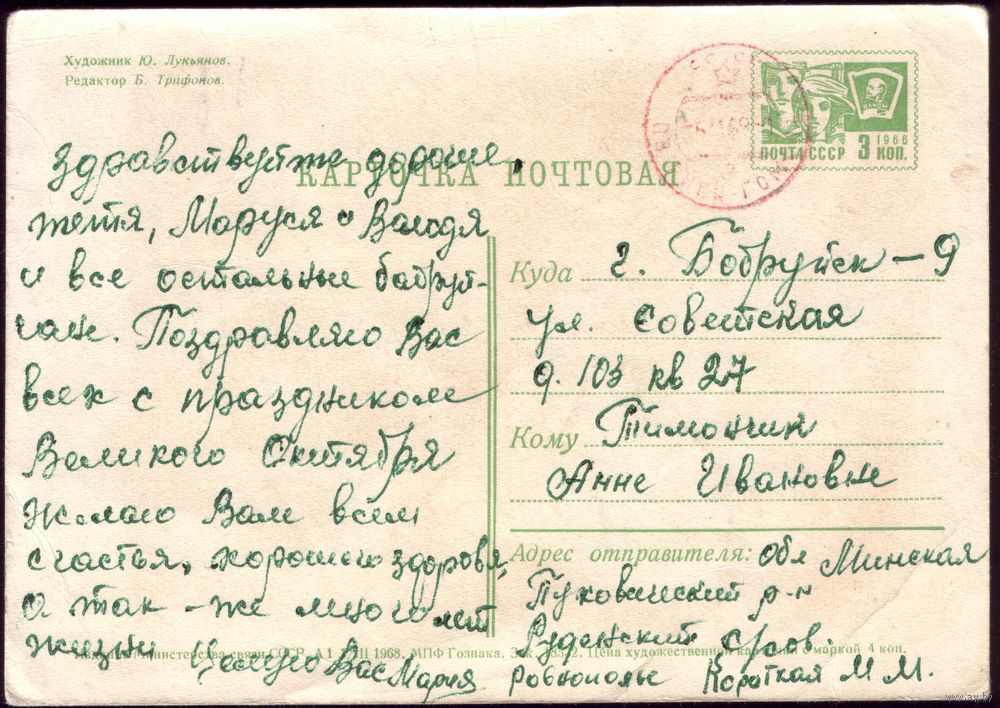 Художник Ю. Лукьянов.
Редактор Б. Трифонов.
ПОЧТА СССР 3 КОП.
1966
ВЛКСМ
КАРТОЧКА ПОЧТОВАЯ
Здравствуйте дорогие
тетя, Маруся и Володя
и все остальные бобруй-
чане. Поздравляю Вас
всех с праздником
Великого Октября
Желаю Вам всем
счастья, хорошего здоровя,
а так-же много лет
жизни Целую Вас Мария
Куда г. Бобруйск-9
ул. Советская
д. 103 кв 27
Кому Тимончик
Анне Ивановне
Адрес отправителя: обл Минская
Пуховический р-н
Руденский с/сов
Ровнополье Короткая М. М.
Министерства связи СССР. А1 1968. МПФ Гознака. Зак. Цена художественной карточки с маркой 4 коп.
www.ay.by